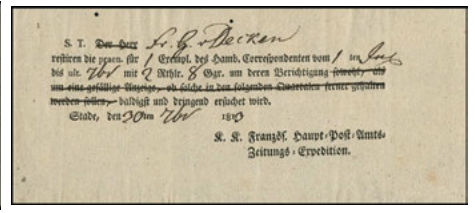 S. T. Der Herr Fr. G. v Decken
restiren die praen. für 1 Exempl. des Hamb. Correspondenten vom 1 ten July
bis ult. 7br mit 2 Rthlr. 8 Ggr. um deren Berichtigung sowohl, als
um eine gefällige Anzeige, ob solche in den folgenden Quartalen ferner gehalten
werden sollen, baldigst und dringend ersuchet wird.
Stade, den 30 ten 7br 1810
K. K. Französ. Haupt-Post-Amts-
Zeitungs-Expedition.